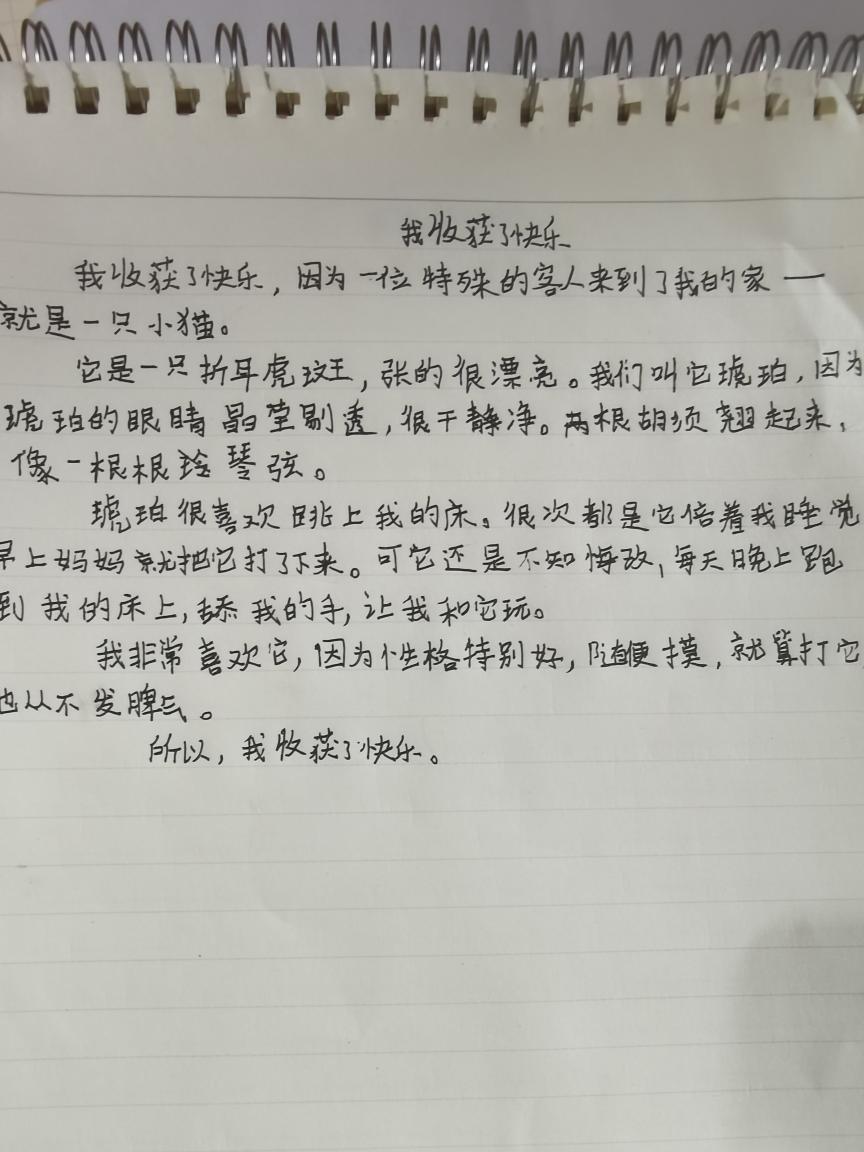 我收获了快乐
我收获了快乐，因为一位特殊的客人来到了我的家——
就是一只小猫。
它是一只折耳虎玟王，张的很漂亮。我们叫它琥珀，因为
琥珀的眼睛晶莹剔透，很干静净。两根胡须翘起来，
像一根根玲琴弦。
琥珀很喜欢跳上我的床。很次都是它倍着我睡觉
早上妈妈就把它打了下来。可它还是不知悔改，每天晚上跑
到我的床上，舔我的手，让我和它玩。
我非常喜欢它，因为性格特别好，随便摸，就算打它
也从不发脾气。
所以，我收获了快乐。